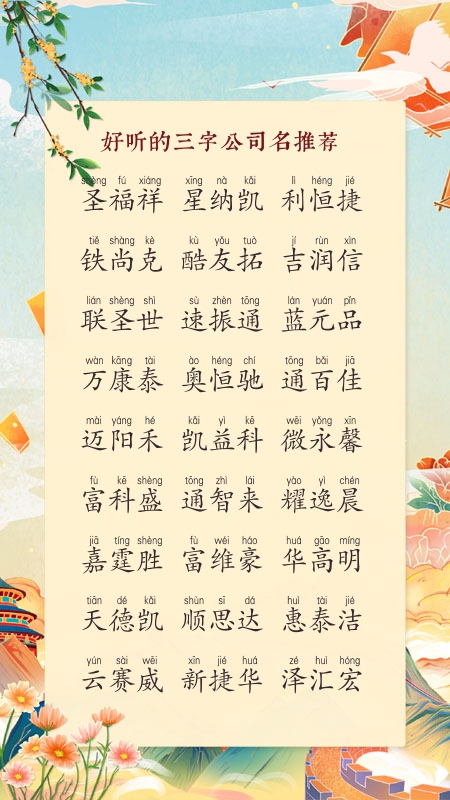 好听的三字公司名推荐
shèng fú xiáng xīng nà kǎi lì héng jié
圣福祥 星纳凯 利恒捷
tiě shàng kè kù yǒu tuò jí rùn xìn
铁尚克 酷友拓 吉润信
lián shèng shì sù zhèn tōng lán yuán pǐn
联圣世 速振通 蓝元品
wàn kāng tài ào héng chí tōng bǎi jiā
万康泰 奥恒驰 通百佳
mài yáng hé kǎi yì kē wēi yǒng xīn
迈阳禾 凯益科 微永馨
fù kē shèng tōng zhì lái yào yì chén
富科盛 通智来 耀逸晨
jiā tíng shèng fù wéi háo huá gāo míng
嘉霆胜 富维豪 华高明
tiān dé kǎi shùn sī dá huì tài jié
天德凯 顺思达 惠泰洁
yún sài wēi xīn jié huá zé huì hóng
云赛威 新捷华 泽汇宏